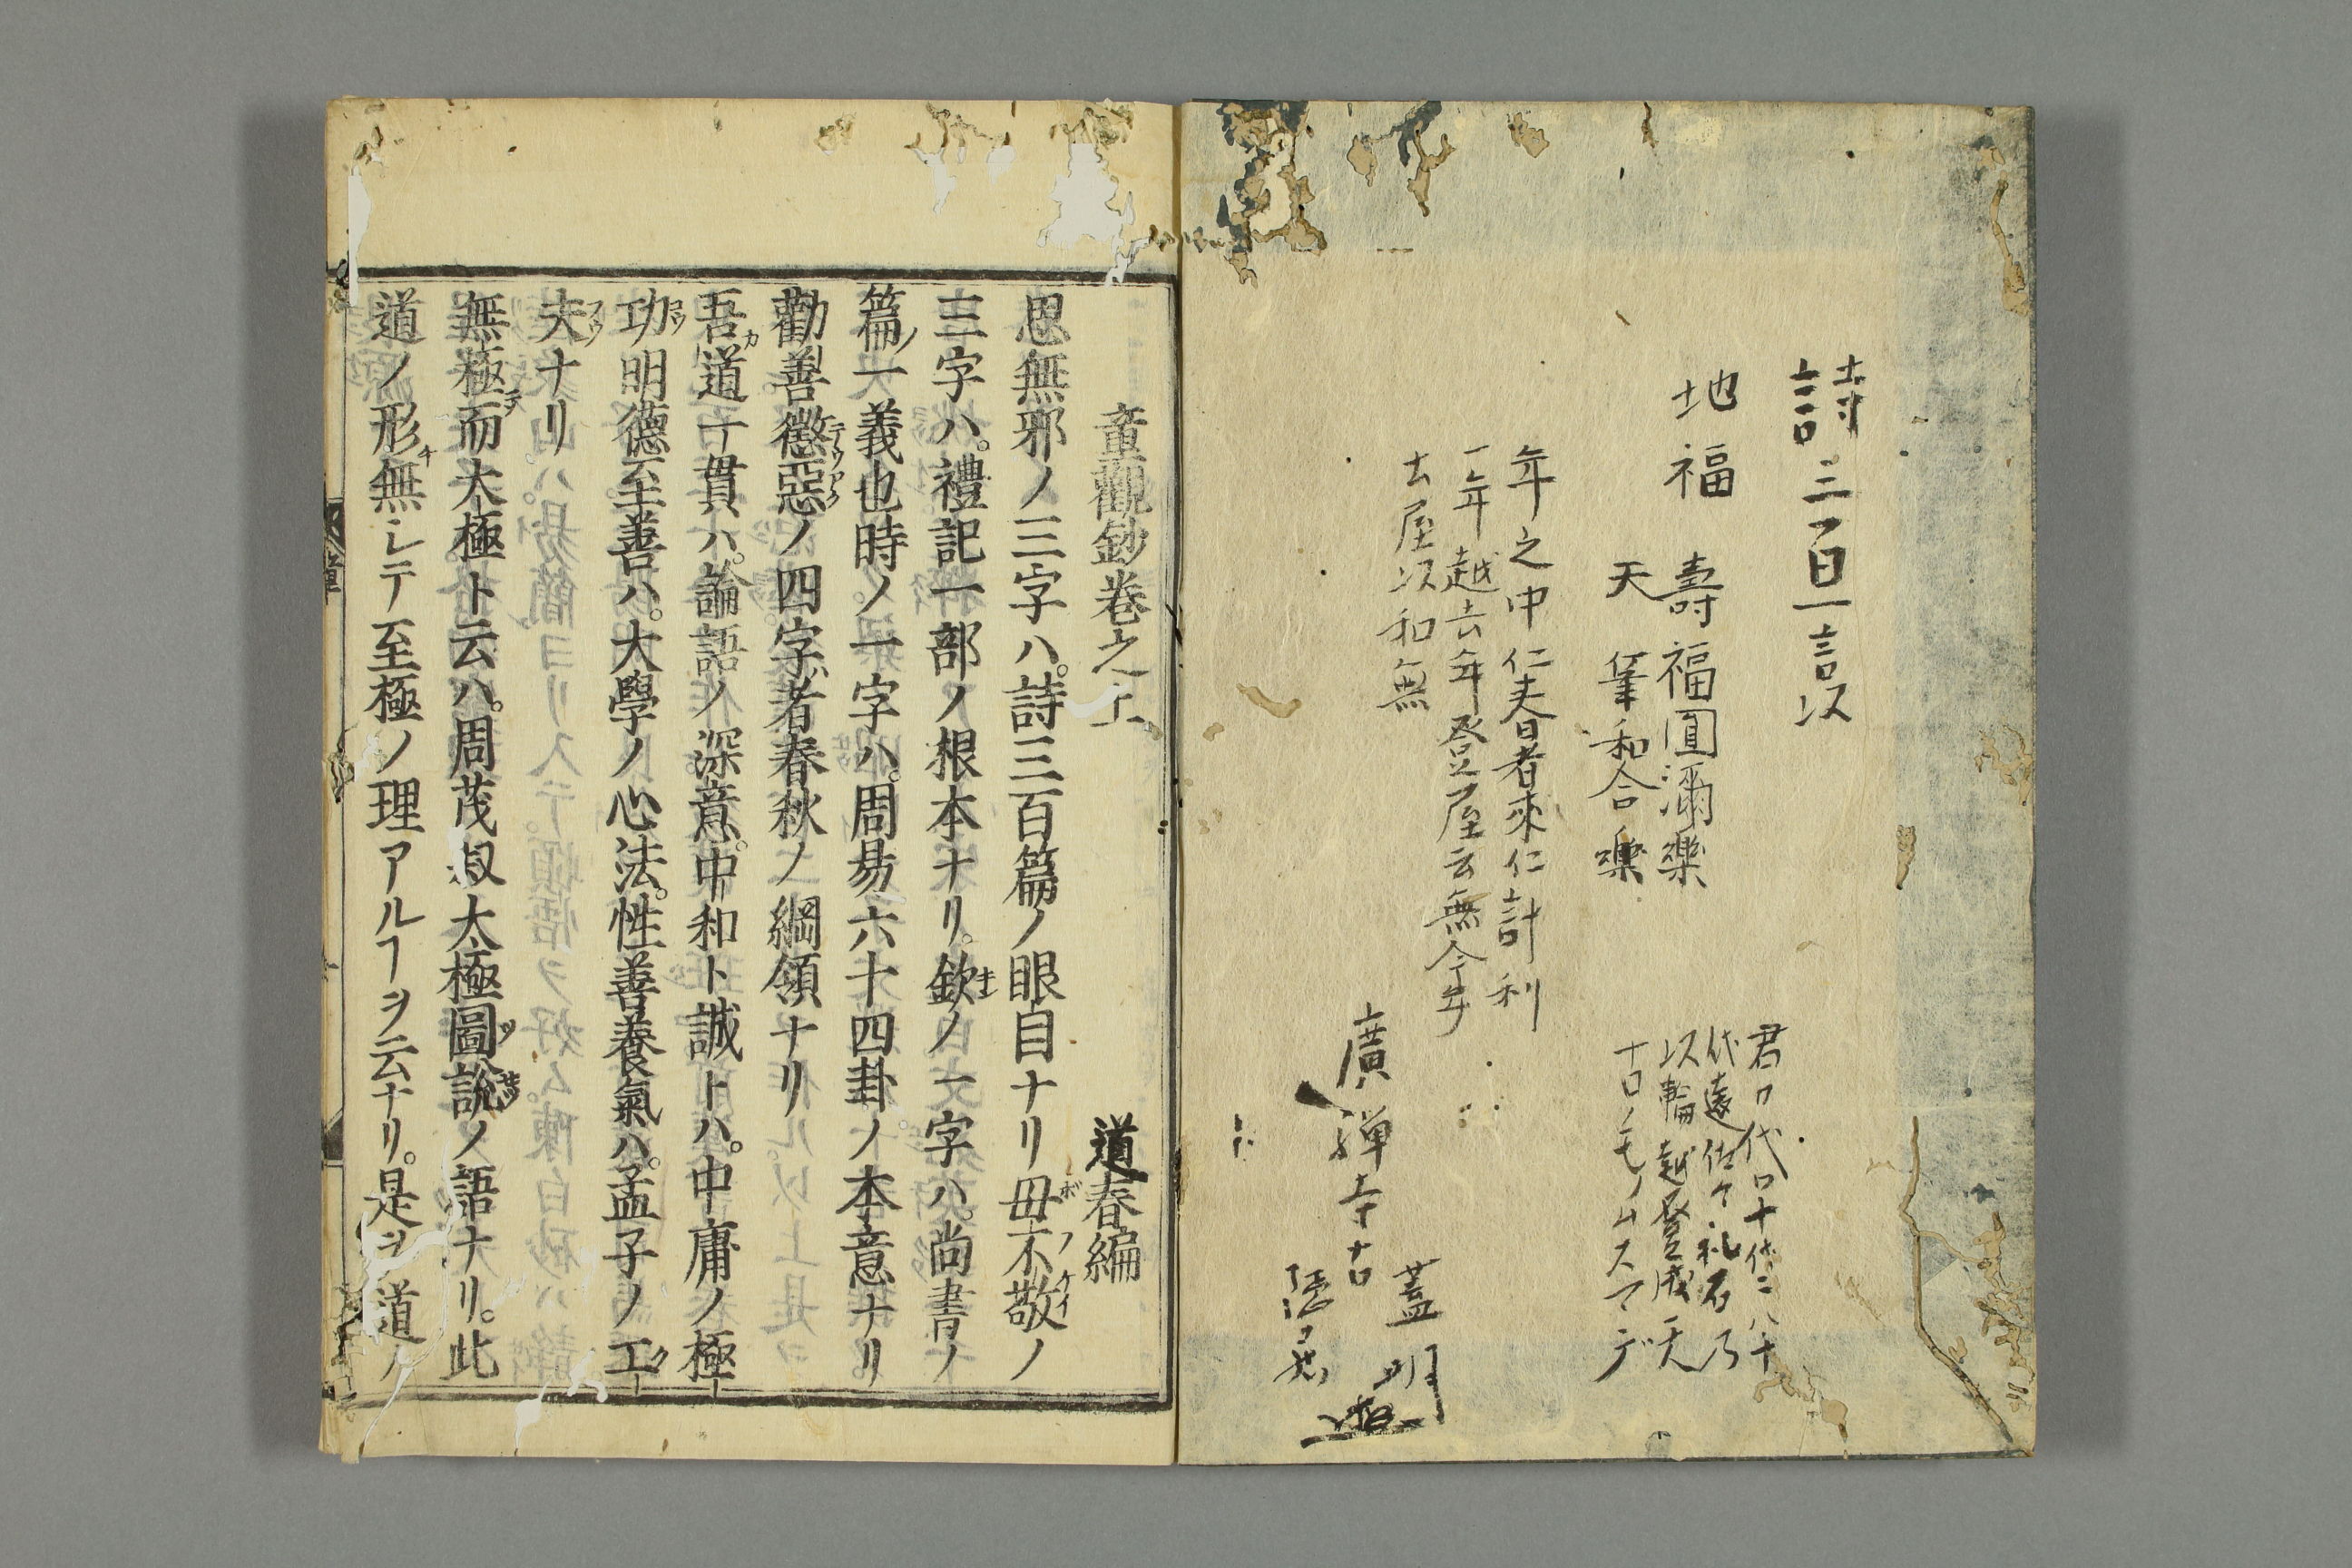 詩三百一言以
地福
壽福圓滿樂
天筆和合樂
年之中仁春者來仁計利
一年越去年登屋云無今年
士屋以和無
君カ代ロ十代ニ八十
代遠佐々礼石乃
以輪越登成天
古ノモノムスマデ
廣禅寺古
蓋明
童觀鈔卷之上
道春編
思無邪ノ三字ハ。詩三百篇ノ眼目ナリ毋不敬ノ
三字ハ。禮記一部ノ根本ナリ。欽ノ一字ハ。尚書ノ
篇ノ一義也時ノ一字ハ。周易六十四卦ノ本意ナリ
勸善懲惡ノ四字ハ者春秋ノ綱領ナリ
吾道一貫ハ。論語ノ深意。中和ト誠トハ。中庸ノ極
功明德至善ハ。大學ノ心法。性善養氣ハ。孟子ノ工
夫ナリ
無極而太極ト云ハ。周茂叔太極圖說ノ語ナリ。此
道ノ形無シテ至極ノ理アルヿヲ云ナリ。是ヲ道ノ